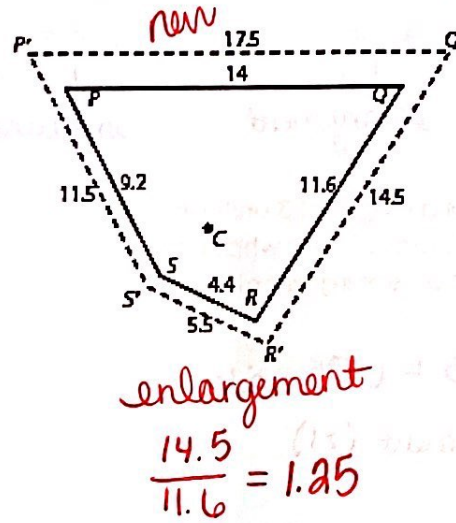 new
P' 17.5 Q
14
P Q
11.5 9.2 11.6 14.5
C
S
S' 4.4 R
5.5
R'
enlargement
14.5
11.6 = 1.25